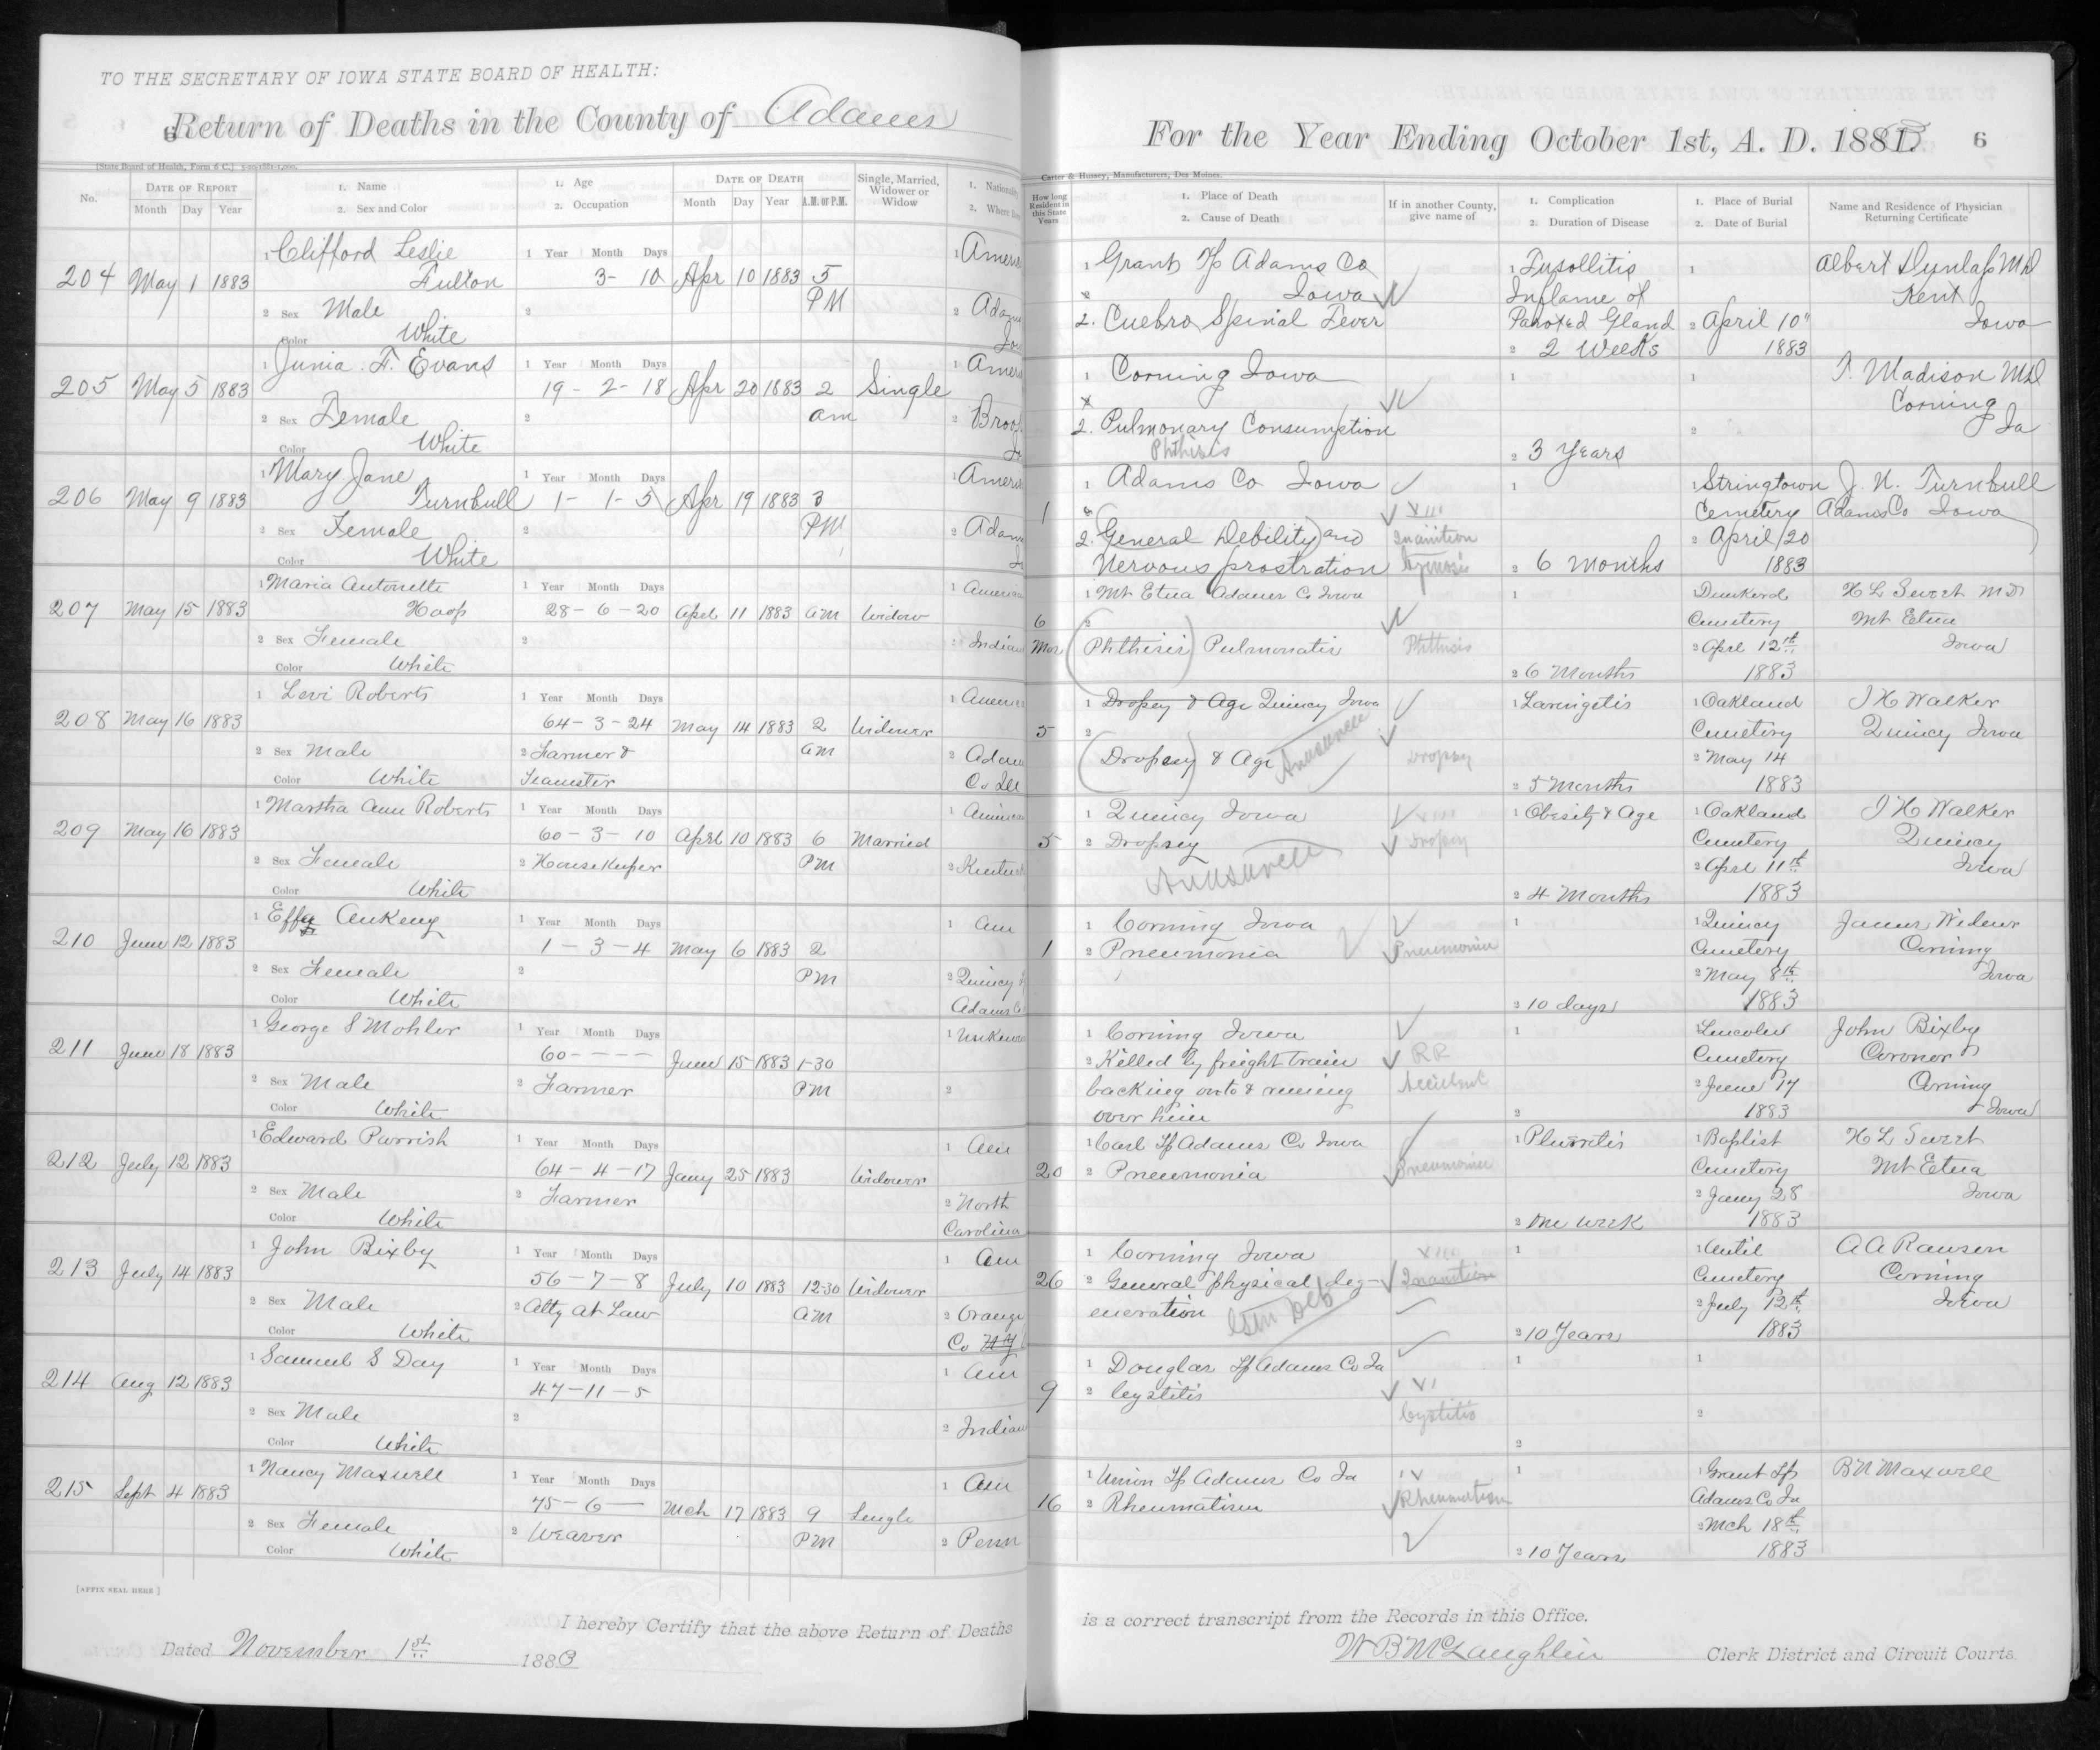 TO THE SECRETARY OF IOWA STATE BOARD OF HEALTH:
6 Return of Deaths in the County of Adams
[State Board of Health, Form 6 C.] 5-20-1881-1,000.
No.
DATE OF REPORT
Month Day Year
1. Name
2. Sex and Color
1. Age
2. Occupation
DATE OF DEATH
Month Day Year A.M. or P.M.
Single, Married, Widower or Widow
1. Nationality
2. Where
204 May 1 1883
1 Clifford Leslie
Fulton
2 Sex Male
Color White
1 Year Month Days
3 - 10
2
Apr 10 1883 5
PM
1 Ameri
2 Adams
205 May 5 1883
1 Junia. F. Evans
2 Sex Female
Color White
1 Year Month Days
19 - 2 - 18
2
Apr 20 1883 2
am
Single
1 Ameri
2 Broo
206 May 9 1883
1 Mary Jane
Turnbull
2 Sex Female
Color White
1 Year Month Days
1 - 1 - 5
2
Apr 19 1883 3
PM
1 Ameri
2 Adam
207 May 15 1883
1 Maria Antonette
Hoop
2 Sex Female
Color White
1 Year Month Days
28 - 6 - 20
2
April 11 1883 am
Widow
1 America
2 Indian
208 May 16 1883
1 Levi Roberts
2 Sex Male
Color White
1 Year Month Days
64 - 3 - 24
2 Farmer &
Teamster
May 14 1883 2
am
Widower
1 Americ
2 Adam
Co Ill
209 May 16 1883
1 Martha Ann Roberts
2 Sex Female
Color White
1 Year Month Days
60 - 3 - 10
2 Housekeeper
April 10 1883 6
PM
Married
1 America
2 Kentuck
210 June 12 1883
1 Effa Ankeny
2 Sex Female
Color White
1 Year Month Days
1 - 3 - 4
2
May 6 1883 2
PM
1 Am
2 Quincy
Adams Co
211 June 18 1883
1 George S Mohler
2 Sex Male
Color White
1 Year Month Days
60 - - - -
2 Farmer
June 15 1883 1-30
PM
1 Unknow
2
212 July 12 1883
1 Edward Parrish
2 Sex Male
Color White
1 Year Month Days
64 - 4 - 17
2 Farmer
Jany 25 1883
Widower
1 Am
2 North
Carolina
213 July 14 1883
1 John Bixby
2 Sex Male
Color White
1 Year Month Days
56 - 7 - 8
2 Atty at Law
July 10 1883 12-30
am
Widower
1 Am
2 Orange
Co NY
214 Aug 12 1883
1 Samuel S Day
2 Sex Male
Color White
1 Year Month Days
47 - 11 - 5
2
1 Am
2 Indian
215 Sept 4 1883
1 Nancy Maxwell
2 Sex Female
Color White
1 Year Month Days
75 - 6 —
2 Weaver
Mch 17 1883 9
PM
Single
1 Am
2 Penn
[AFFIX SEAL HERE]
I hereby Certify that the above Return of Deaths
Dated November 1st 1883
For the Year Ending October 1st, A. D. 1883. 6
Carter & Hussey, Manufacturers, Des Moines.
How long Resident in this State Years
1. Place of Death
2. Cause of Death
If in another County, give name of
1. Complication
2. Duration of Disease
1. Place of Burial
2. Date of Burial
Name and Residence of Physician Returning Certificate
1 Grant Tp Adams Co
Iowa
2. Cuebro Spinial Fever
1 Tusollitis
Inflame of
Paroted Gland
2 2 Weeks
1
2 April 10"
1883
Albert Dunlap MD
Kent
Iowa
1 Corning Iowa
2. Pulmonary Consumption
Phthisis
1
2 3 Years
1
2
F. Madison MD
Corning
Ia
1
1 Adams Co Iowa
2. (General Debility) and
Nervous prostration
XIII
Inanition
1
2 6 Months
1 Stringtown
Cemetery
2 April 20
1883
J. N. Turnbull
Adams Co Iowa
6
Mos
1 Mt Etna Adams Co Iowa
2
(Phthisis) Pulmonatis
Phthisis
1
2 6 Months
Dunkerd
Cemetery
2 Aprl 12th
1883
H L Sweet MD
Mt Etna
Iowa
5
1 Dropsy & Age Quincy Iowa
2
(Dropsey) & Age
Anasarca
Dropsy
1 Laringitis
2 5 Months
1 Oakland
Cemetery
2 May 14
1883
J H Walker
Quincy Iowa
5
1 Quincy Iowa
2 Dropsey
Anasarca
Dropsy
1 Obesity & Age
2 4 Months
1 Oakland
Cemetery
2 Aprl 11th
1883
J H Walker
Quincy
Iowa
1
1 Corning Iowa
2 Pneumonia
Pneumonia
1
2 10 days
1 Quincy
Cemetery
2 May 8th
1883
James Widner
Corning
Iowa
1 Corning Iowa
2 Killed by freight train
backing onto & runing
over him
RR
Accident
1
2
1 Lincoln
Cemetery
2 June 17
1883
John Bixby
Coroner
Corning
Iowa
20
1 Carl Tp Adams Co Iowa
2 Pneumonia
Pneumonia
1 Plueritis
2 One week
1 Baptist
Cemetery
2 Jany 28
1883
H L Sweet
Mt Etna
Iowa
26
1 Corning Iowa
2 General physical deg-
eneration
Gen Deb
XIII
Inanition
1
2 10 Years
1
Cemetery
2 July 12th
1883
A A Rawson
Corning
Iowa
9
1 Douglas Tp Adams Co Ia
2 Cystitis
VI
Cystitis
1
2
1
2
16
1 Union Tp Adams Co Ia
2 Rheumatism
IV
Rheumatism
1
2 10 Years
1 Grant Tp
Adams Co Ia
2 Mch 18th
1883
B N Maxwell
is a correct transcript from the Records in this Office.
W B McLaughlin Clerk District and Circuit Courts.